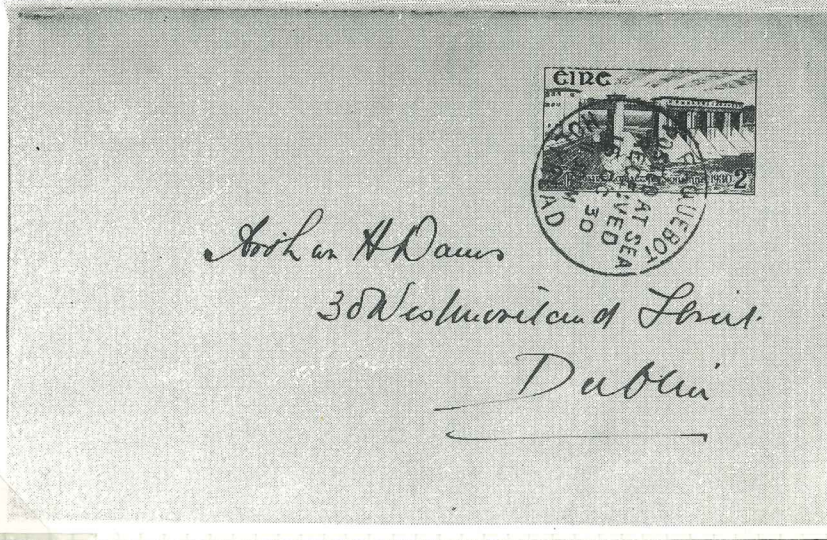 ÉIRE
1930 2
PAQUEBOT
POSTED AT SEA
RECEIVED
30
HOLYHEAD
H Davis
30 Westmoreland Street.
Dublin